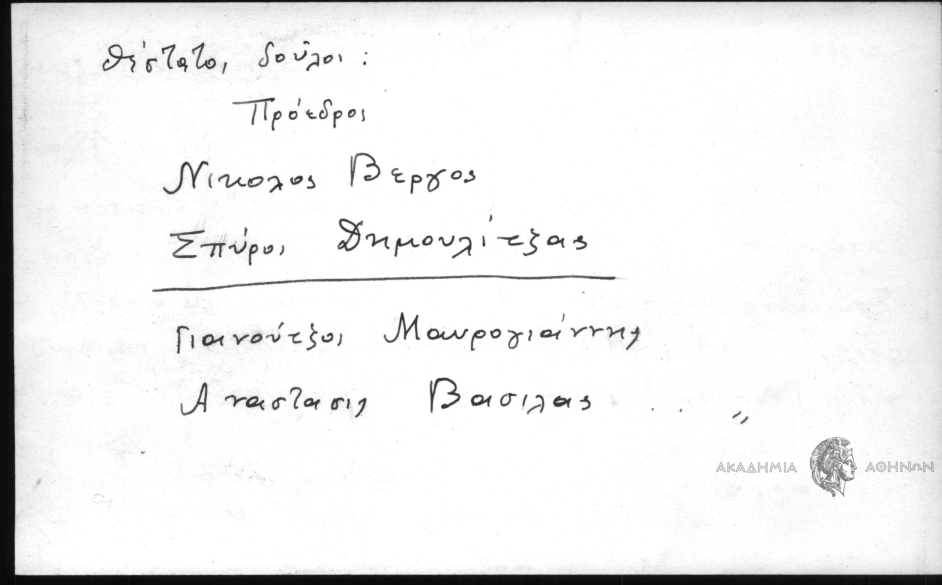 θέστατοι δούλοι :
Πρόεδρος
Νικολος Βεργος
Σπύρος Δημουλίτζας
Γιανούτζος Μαυρογιάννης
Αναστασις Βασιλας . . "
ΑΚΑΔΗΜΙΑ ΑΘΗΝΩΝ